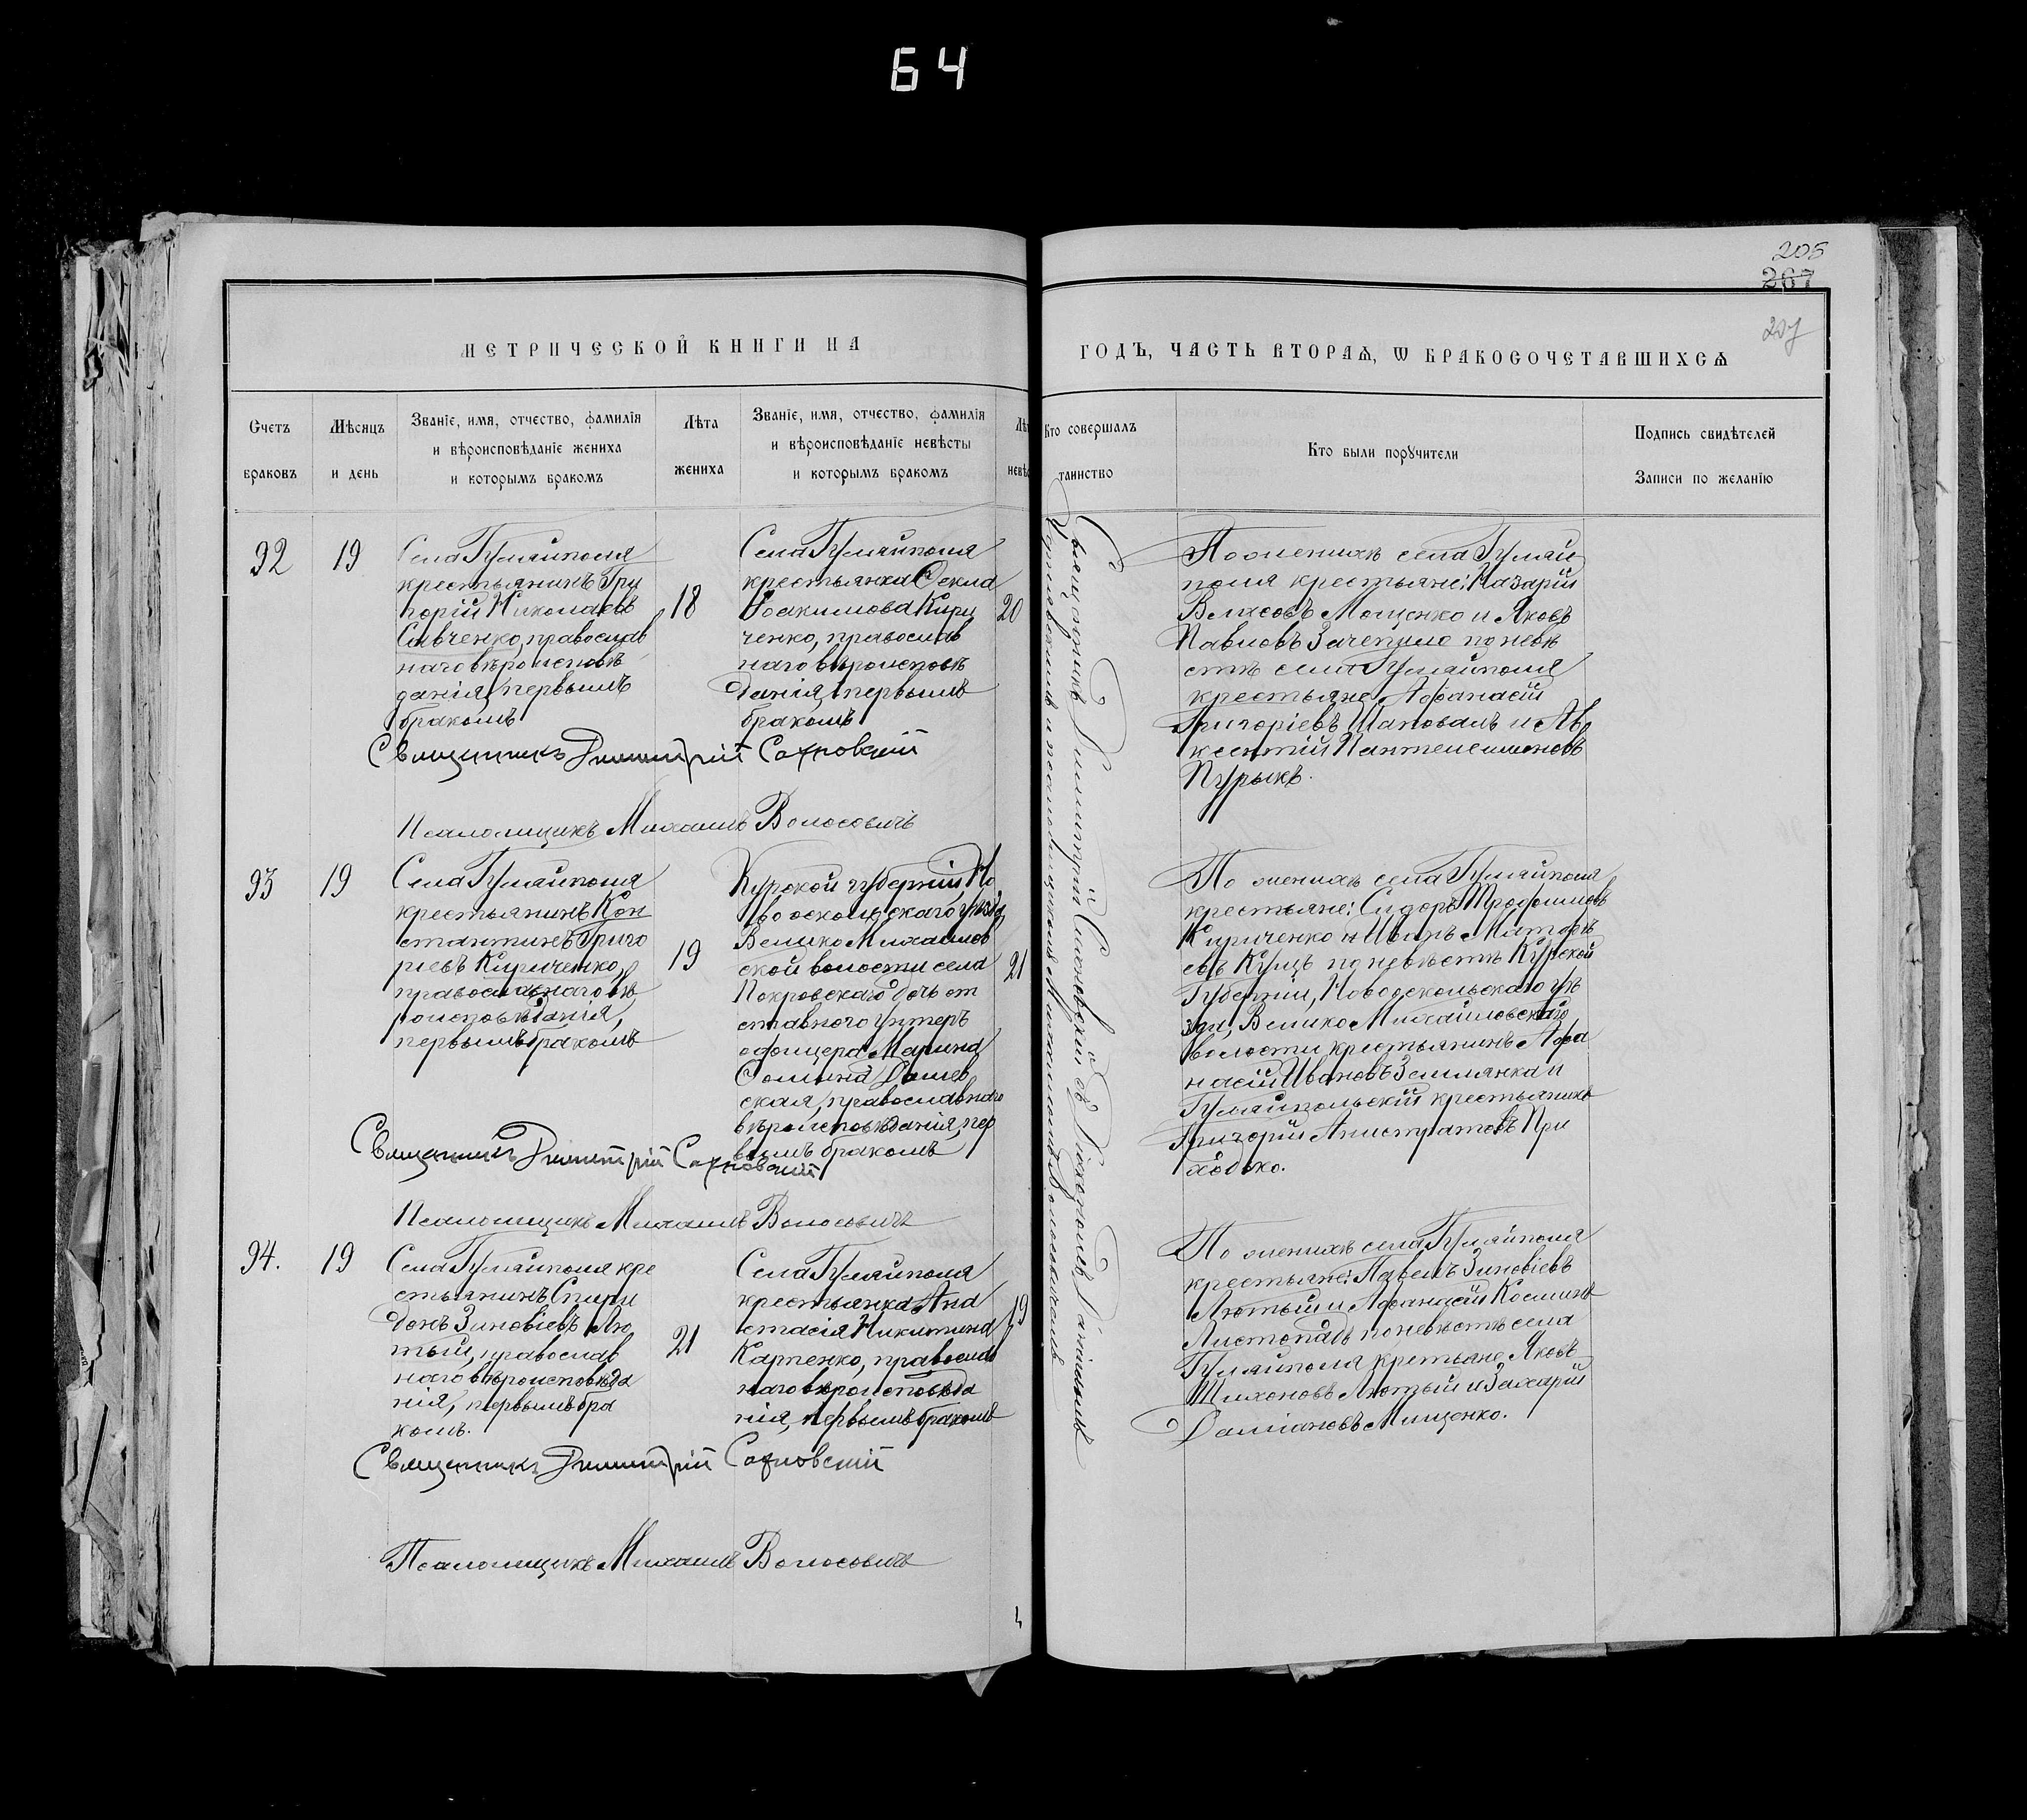 64
205
267
207
МЕТРИЧЕСКОЙ КНИГИ НА
ГОДЪ, ЧАСТЬ ВТОРАѦ, Ѡ БРАКОСОЧЕТАВШИХСѦ
Счетъ
браковъ
Мѣсяцъ
и день
Званіе, имя, отчество, фамилія
и вѣроисповѣданіе жениха
и которымъ бракомъ
Лѣта
жениха
Званіе, имя, отчество, фамилія
и вѣроисповѣданіе невѣсты
и которымъ бракомъ
Лѣ
невѣс
Кто совершалъ
таинство
Кто были порꙋчители
Подпись свидѣтелей
Записи по желанію
92
19
Села Гуляйполя
крестьянинъ Гри
горій Николаевъ
Савченко, православ
наго вѣроисповѣ
данія, первымъ
бракомъ
18
Села Гуляйполя
крестьянка Ѳекла
Іоакимова Кири
ченко, православ
наго вѣроисповѣ
данія, первымъ
бракомъ
20
Священникъ Димитрій Сахновскій
Псаломщикъ Михаилъ Волосовичъ
По женихѣ села Гуляй
поля крестьяне: Назарій
Власовъ Мощенко и Яковъ
Павловъ Зачепило по невѣ
стѣ села Гуляйполя
крестьяне Афанасій
Григоріевъ Шаповалъ и Ав
ксентій Пантелеимоновъ
Пурыкъ.
93
19
Села Гуляйполя
крестьянинъ Кон
стантинъ Григо
ріевъ Кириченко,
православнаго вѣ
роисповѣданія,
первымъ бракомъ
19
Курской губерніи Но
вооскольскаго уѣзда,
Велико Михайлов
ской волости села
Покровскаго дочь от
ставного унтеръ
офицера Марина
Сомина
ская, православнаго
вѣроисповѣданія, пер
вымъ бракомъ
21
Священникъ Димитрій Сахновскій
Псаломщикъ Михаилъ Волосовичъ
По женихѣ села Гуляйполя
крестьяне: Сидоръ Трофимовъ
Кириченко и Иванъ Матвѣ
евъ Куцъ по невѣстѣ Курской
Губерніи, Новооскольскаго уѣ
зда, Велико Михайловской
волости крестьянинъ Афа
насій Ивановъ Землянка и
Гуляйпольскій крестьянинъ
Григорій Апистратовъ При
ходько.
94.
19
Села Гуляйполя кре
стьянинъ Спири
донъ Зиновіевъ Лю
тый, православ
наго вѣроисповѣда
нія, первымъ бра
комъ.
21
Села Гуляйполя
крестьянка Ана
стасія Никитина
Карпенко, православ
наго вѣроисповѣда
нія, первымъ бракомъ
19
Священникъ Димитрій Сахновскій
Псаломщикъ Михаилъ Волосовичъ
По женихѣ села Гуляйполя
крестьяне: Павелъ Зиновіевъ
Лютый и Афанасій Косминъ
Листопадъ по невѣстѣ села
Гуляйполя кретьяне Яковъ
Тихоновъ Лютый и Захарій
Даміановъ Мищенко.
Священникъ Димитрій Сахновскій съ Діакономъ
и псаломщикомъ Михаиломъ Волосовичемъ